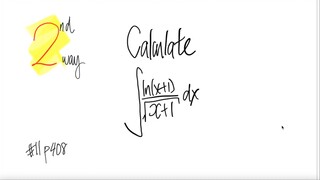 2nd way
Calculate
∫ ln(x+1)/√(x+1) dx
#11 p408